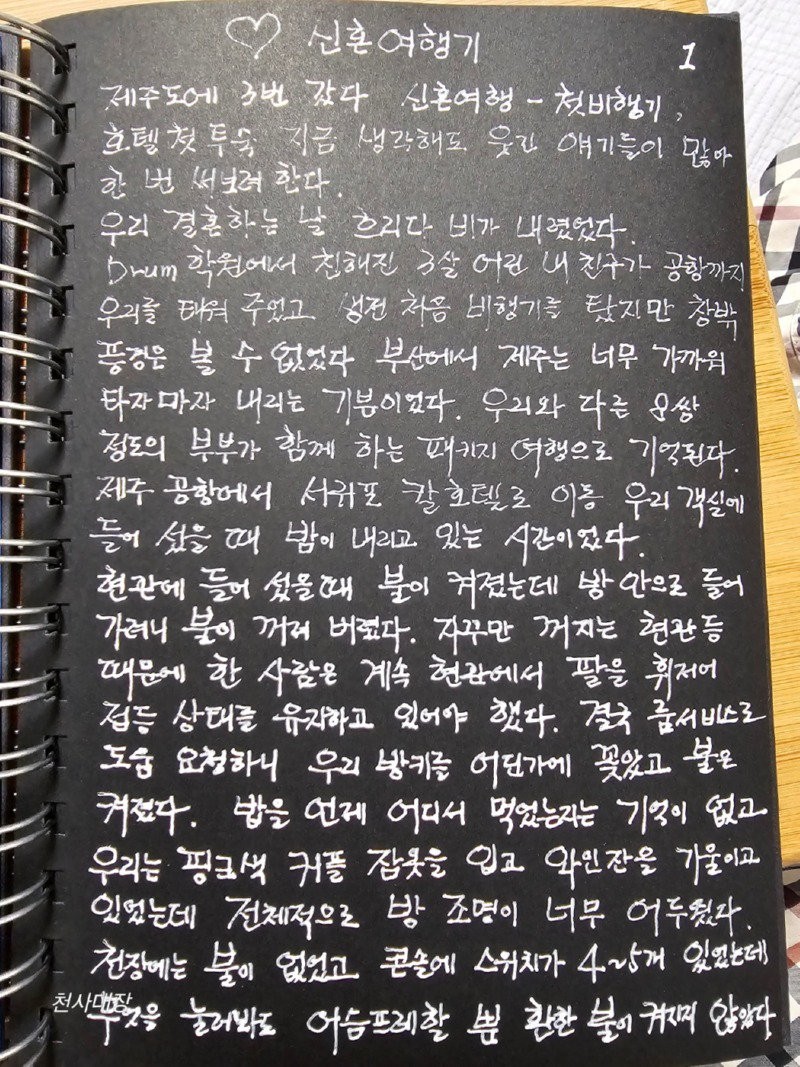 ♡ 신혼여행기 1
제주도에 3번 갔다 신혼여행 - 첫비행기,
호텔 첫 투숙 지금 생각해도 웃긴 얘기들이 많아
한 번 써보려 한다.
우리 결혼하는 날 흐리다 비가 내렸었다.
Drum 학원에서 친해진 3살 어린 내 친구가 공항까지
우리를 태워 주었고 생전 처음 비행기를 탔지만 창밖
풍경은 볼 수 없었다 부산에서 제주는 너무 가까워
타자마자 내리는 기분이었다. 우리와 다른 8쌍
정도의 부부가 함께 하는 패키지 여행으로 기억된다.
제주 공항에서 서귀포 칼호텔로 이동 우리 객실에
들어 섰을 때 밤이 내리고 있는 시간이었다.
현관에 들어 섰을때 불이 켜졌는데 방 안으로 들어
가려니 불이 꺼려 버렸다. 자꾸만 꺼지는 현관등
때문에 한 사람은 계속 현관에서 팔을 휘저어
점등 상태를 유지하고 있어야 했다. 결국 룸서비스로
도움 요청하니 우리 방키를 어딘가에 꽂았고 불은
켜졌다. 밥을 언제 어디서 먹었는지는 기억이 없고
우리는 핑크색 커플 잠옷을 입고 와인잔을 기울이고
있었는데 전체적으로 방 조명이 너무 어두웠다.
천장에는 불이 없었고 콘솔에 스위치가 4~5개 있었는데
무엇을 눌러봐도 어슴프레할 뿐 환한 불이 켜지지 않았다
천사대장